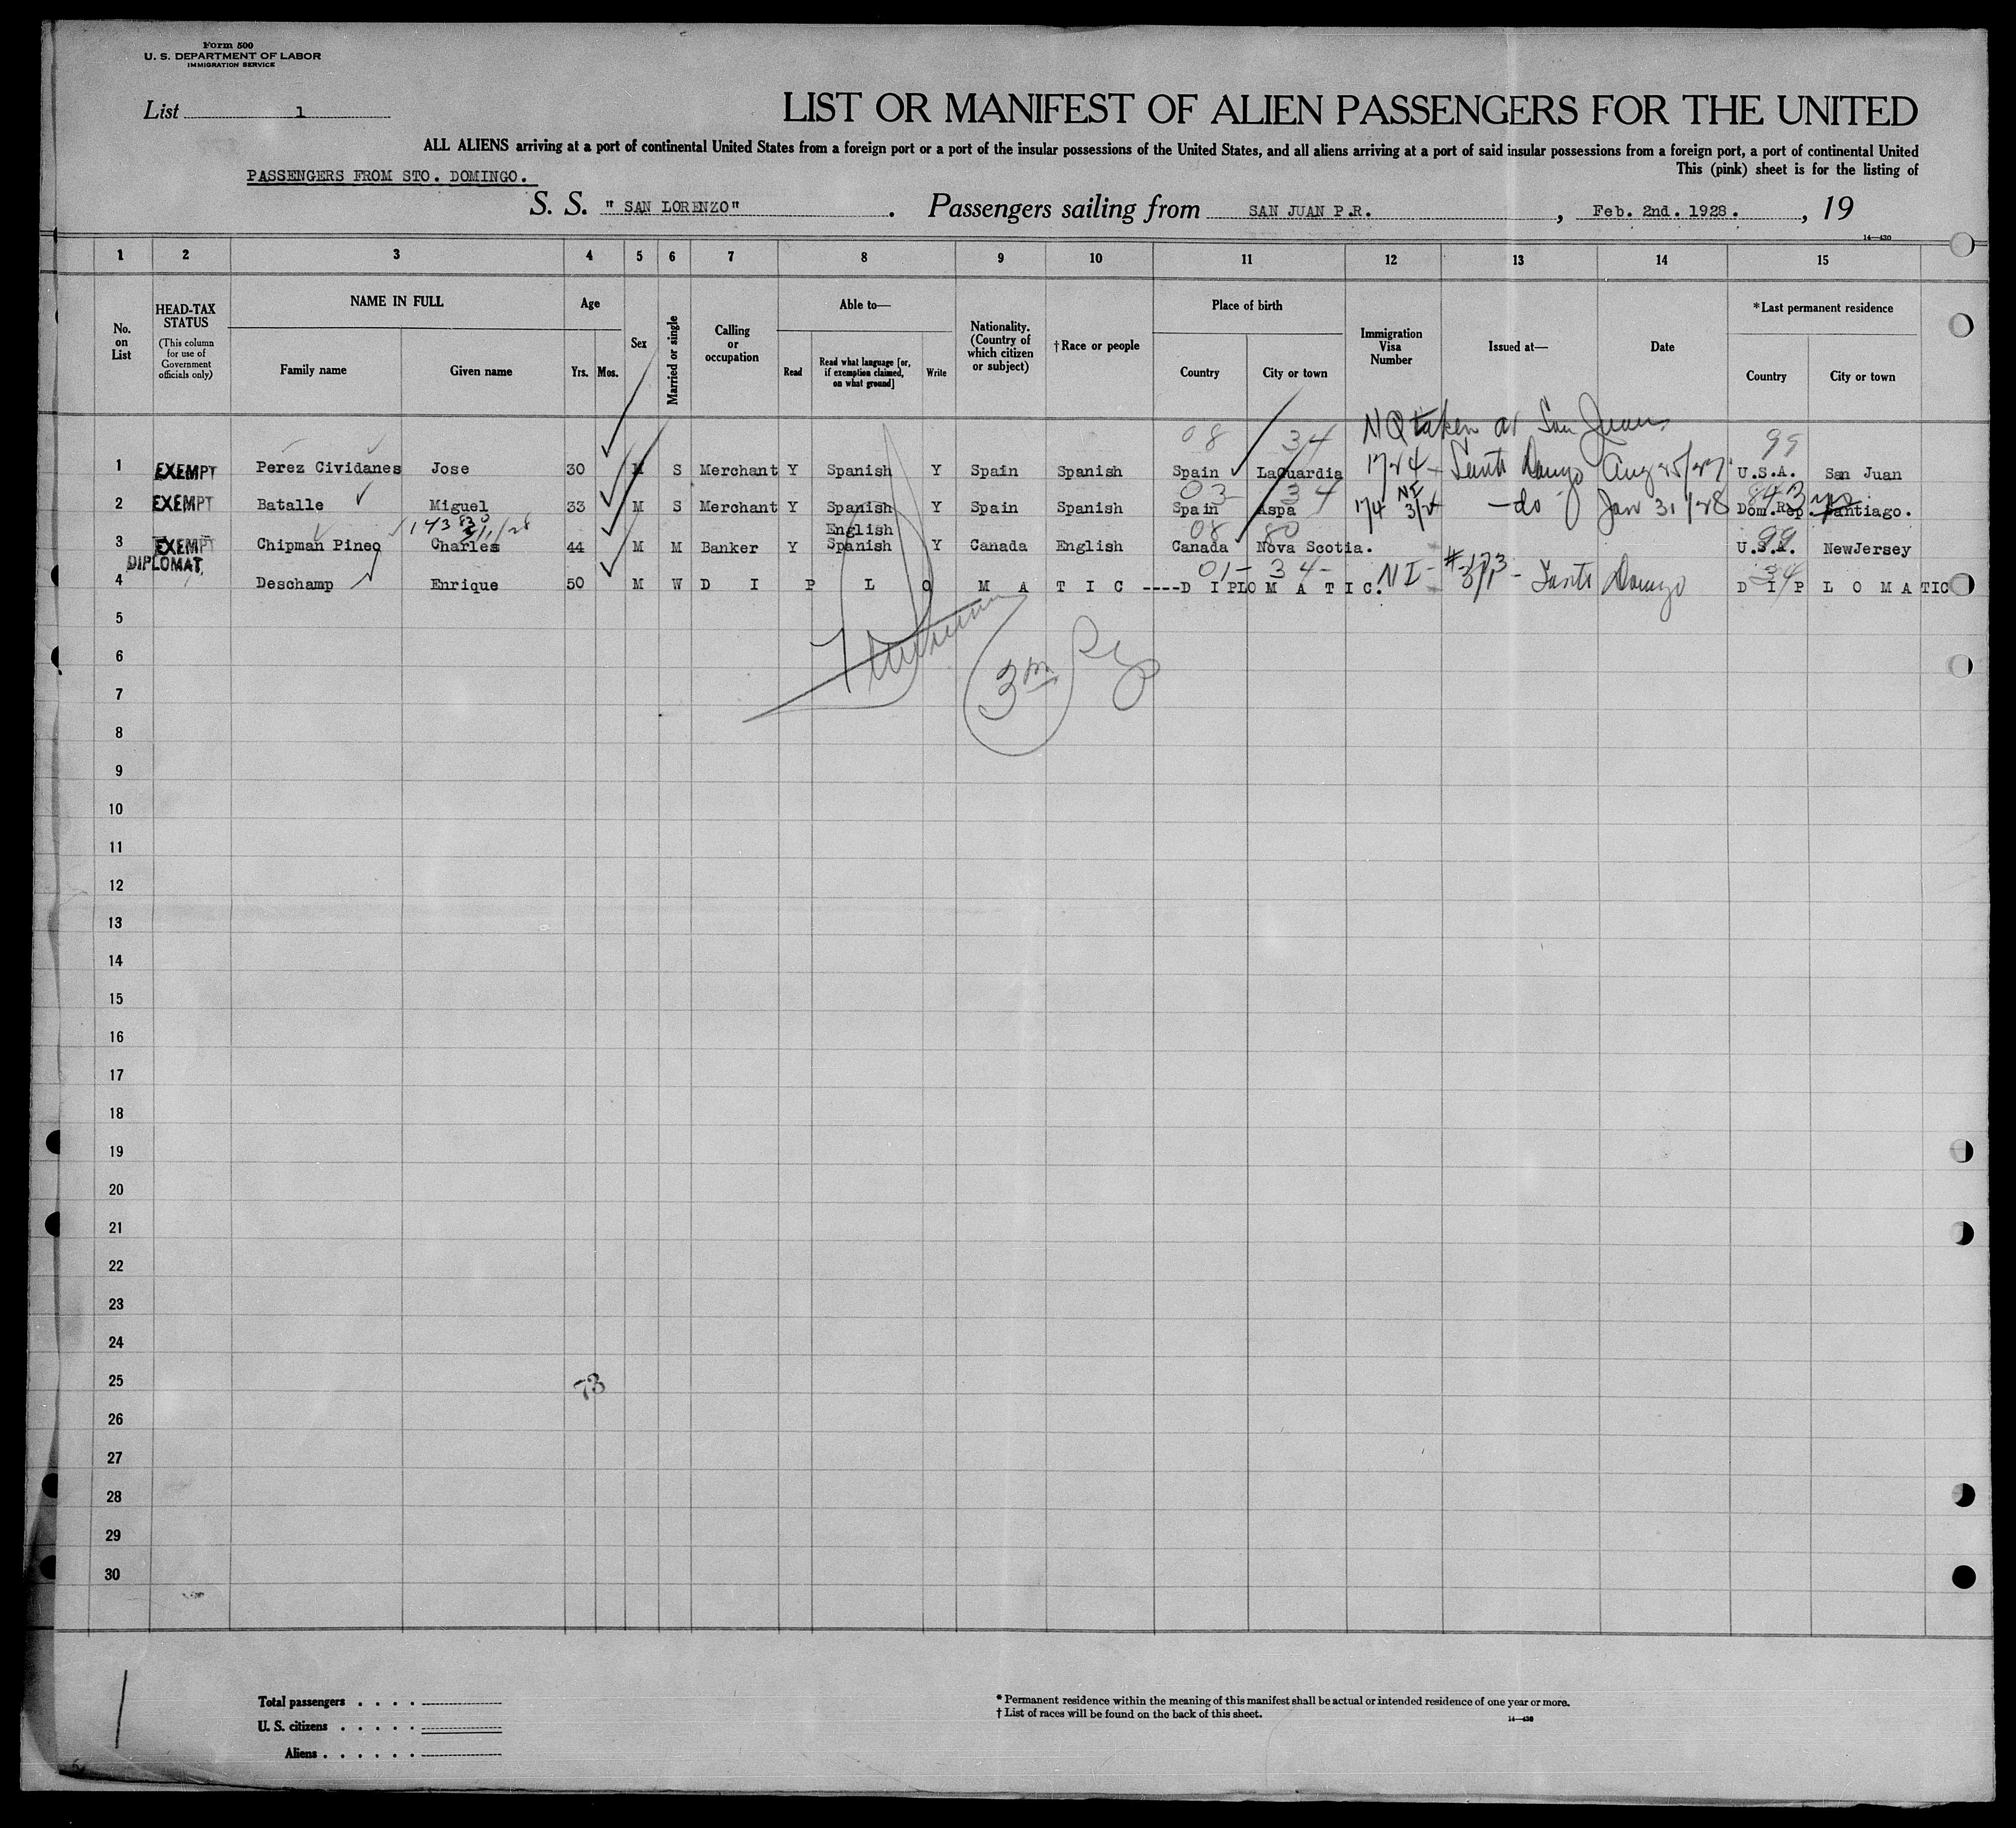 Form 500
U. S. DEPARTMENT OF LABOR
IMMIGRATION SERVICE
List 1
LIST OR MANIFEST OF ALIEN PASSENGERS FOR THE UNITED
ALL ALIENS arriving at a port of continental United States from a foreign port or a port of the insular possessions of the United States, and all aliens arriving at a port of said insular possessions from a foreign port, a port of continental United
This (pink) sheet is for the listing of
PASSENGERS FROM STO. DOMINGO.
S. S. " SAN LORENZO" . Passengers sailing from SAN JUAN P.R. , Feb. 2nd. 1928. , 19
14—430
1 2 3 4 5 6 7 8 9 10 11 12 13 14 15
No. on List
HEAD-TAX STATUS
(This column for use of Government officials only)
NAME IN FULL
Family name
Given name
Age
Yrs. Mos.
Sex
Married or single
Calling or occupation
Able to—
Read
Read what language [or, if exemption claimed, on what ground]
Write
Nationality. (Country of which citizen or subject)
† Race or people
Place of birth
Country
City or town
Immigration Visa Number
Issued at—
Date
* Last permanent residence
Country
City or town
NQ taken at San Juan
08 34 99
1 EXEMPT Perez Cividanes Jose 30 M S Merchant Y Spanish Y Spain Spanish Spain LaGuardia 1724 Santo Domgo Aug 25/27 U.S.A. San Juan
03 34 NI
2 EXEMPT Batalle Miguel 33 M S Merchant Y Spanish Y Spain Spanish Spain Aspa 174 3/24 -do- Jan 31/28 Dom.Rep. Santiago.
English 08 80 99
3 EXEMPT Chipman Pineo Charles 44 M M Banker Y Spanish Y Canada English Canada Nova Scotia. U.S.A. NewJersey
DIPLOMAT.
01- 34- NI- #173 Santo Domgo 34
4 Deschamp Enrique 50 M W D I P L O M A T I C ----D I PLO M A T I C. D I P L O M A TIC
5
6
3rd
7
8
9
10
11
12
13
14
15
16
17
18
19
20
21
22
23
24
25
73
26
27
28
29
30
Total passengers . . . .
U. S. citizens . . . . .
Aliens . . . . . .
* Permanent residence within the meaning of this manifest shall be actual or intended residence of one year or more.
† List of races will be found on the back of this sheet.
14—430